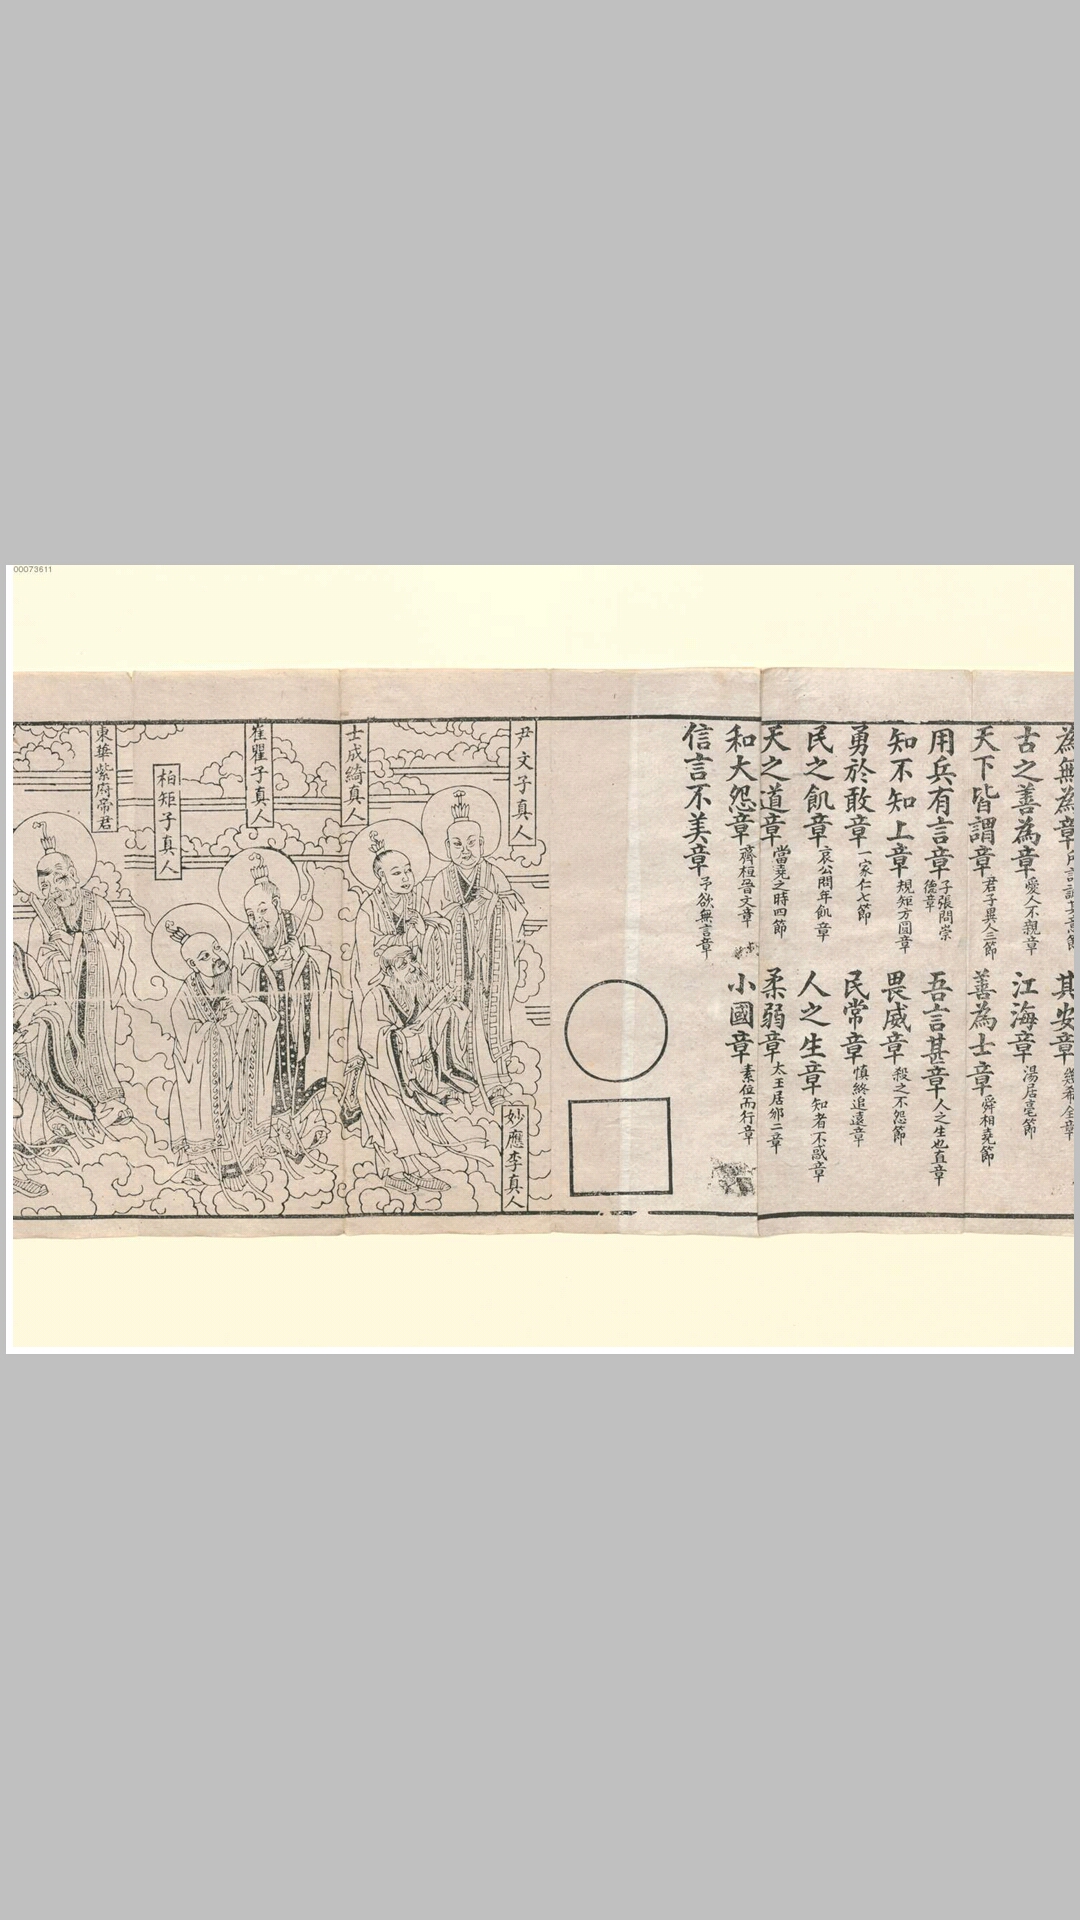 00073611
為無為章
其安章
古之善為章愛人不親章
江海章湯居亳節
天下皆謂章君子異人三節
善為士章舜相堯節
用兵有言章子張問崇德章
吾言甚章人之生也直章
知不知上章規矩方圓章
畏威章殺之不怨節
勇於敢章一家仁七節
民常章慎終追遠章
民之飢章哀公問年飢章
人之生章知者不惑章
天之道章當堯之時四節
柔弱章太王居邠二章
和大怨章齊桓晉文章
小國章素位而行章
信言不美章予欲無言章
尹文子真人
妙應李真人
士成綺真人
崔瞿子真人
柏矩子真人
東華紫府帝君